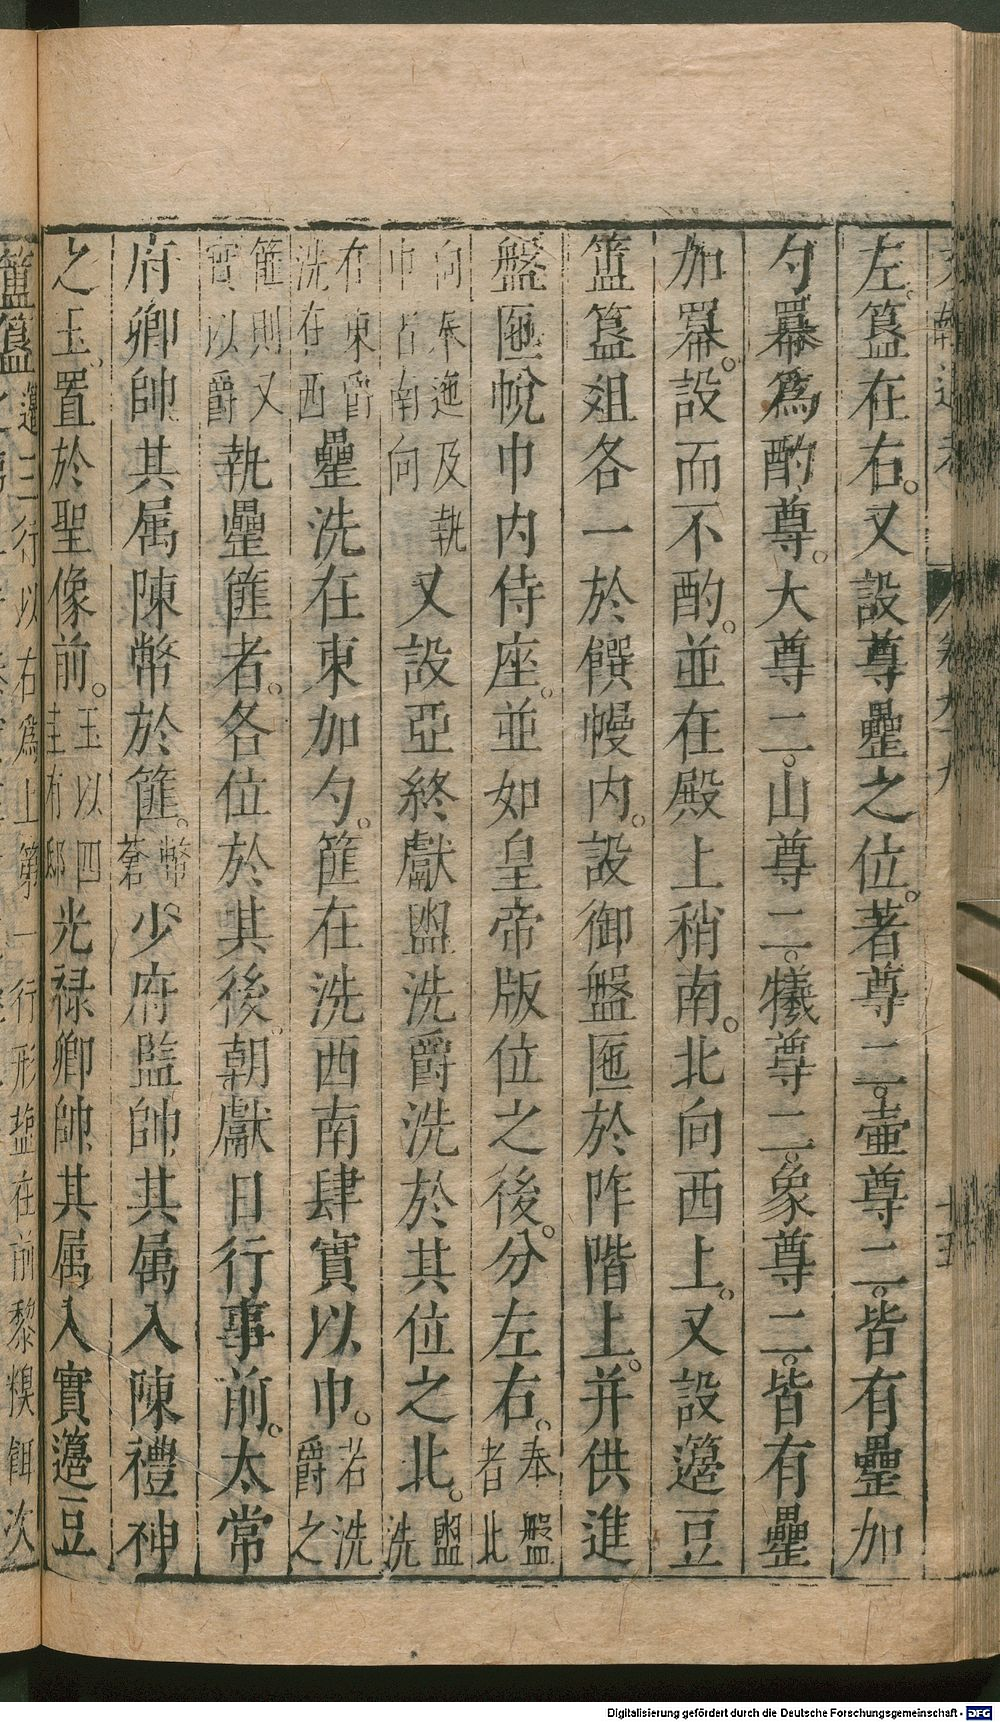 左。簋在右。又設尊罍之位。著尊二。壷尊二。皆有罍加
勺羃爲酌尊。大尊二。山尊二。犧尊二。象尊二。皆有罍
加羃。設而不酌。並在殿上稍南。北向西上。又設籩豆
簠簋俎各一於饌幔内。設御盤匜於阼階上。并供進
盤匜帨巾内侍座。並如皇帝版位之後。分左右。奉盤者北
向奉迤及執巾者南向又設亞終獻盥洗爵洗於其位之北。盥洗
在東爵洗在西罍洗在東加勺。篚在洗西南肆實以巾。若洗爵之
篚則又實以爵執罍篚者。各位於其後。朝獻日行事前。太常
府卿帥其属陳幣於篚。幣蒼少府監帥其属入陳禮神
之玉。置於聖像前。玉以四圭有邸光禄卿帥其属入實籩豆
簠簋籩三行以右爲上第一行形塩在前黎糗餌次
卷九十九
十五
Digitalisierung gefördert durch die Deutsche Forschungsgemeinschaft - DFG